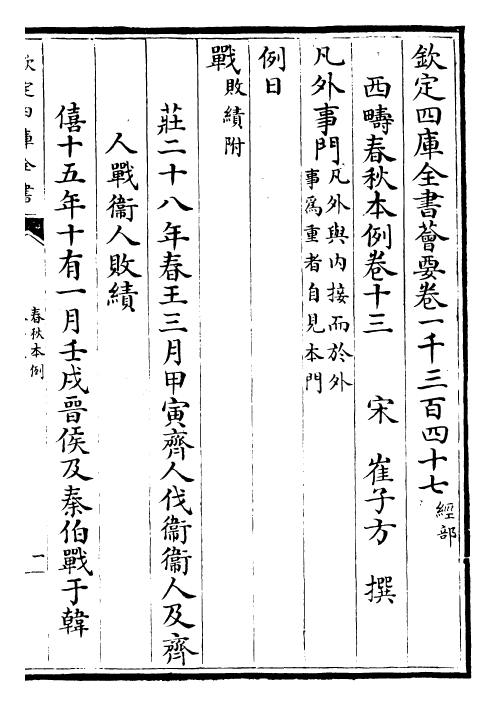 欽定四庫全書薈要卷一千三百四十七 經部
西疇春秋本例卷十三 宋 崔子方 撰
凡外事門 凡外與内接而於外
事為重者自見本門
例日
戰 敗績附
莊二十八年春王三月甲寅齊人伐衞衞人及齊
人戰衞人敗績
僖十五年十有一月壬戌晉侯及秦伯戰于韓
欽定四庫全書
春秋本例
一